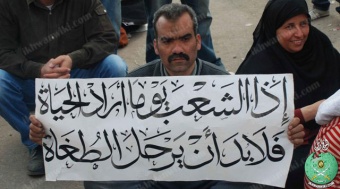 إذا الشعب يوما أراد الحياة
فلابد أن يرحل الطغاة